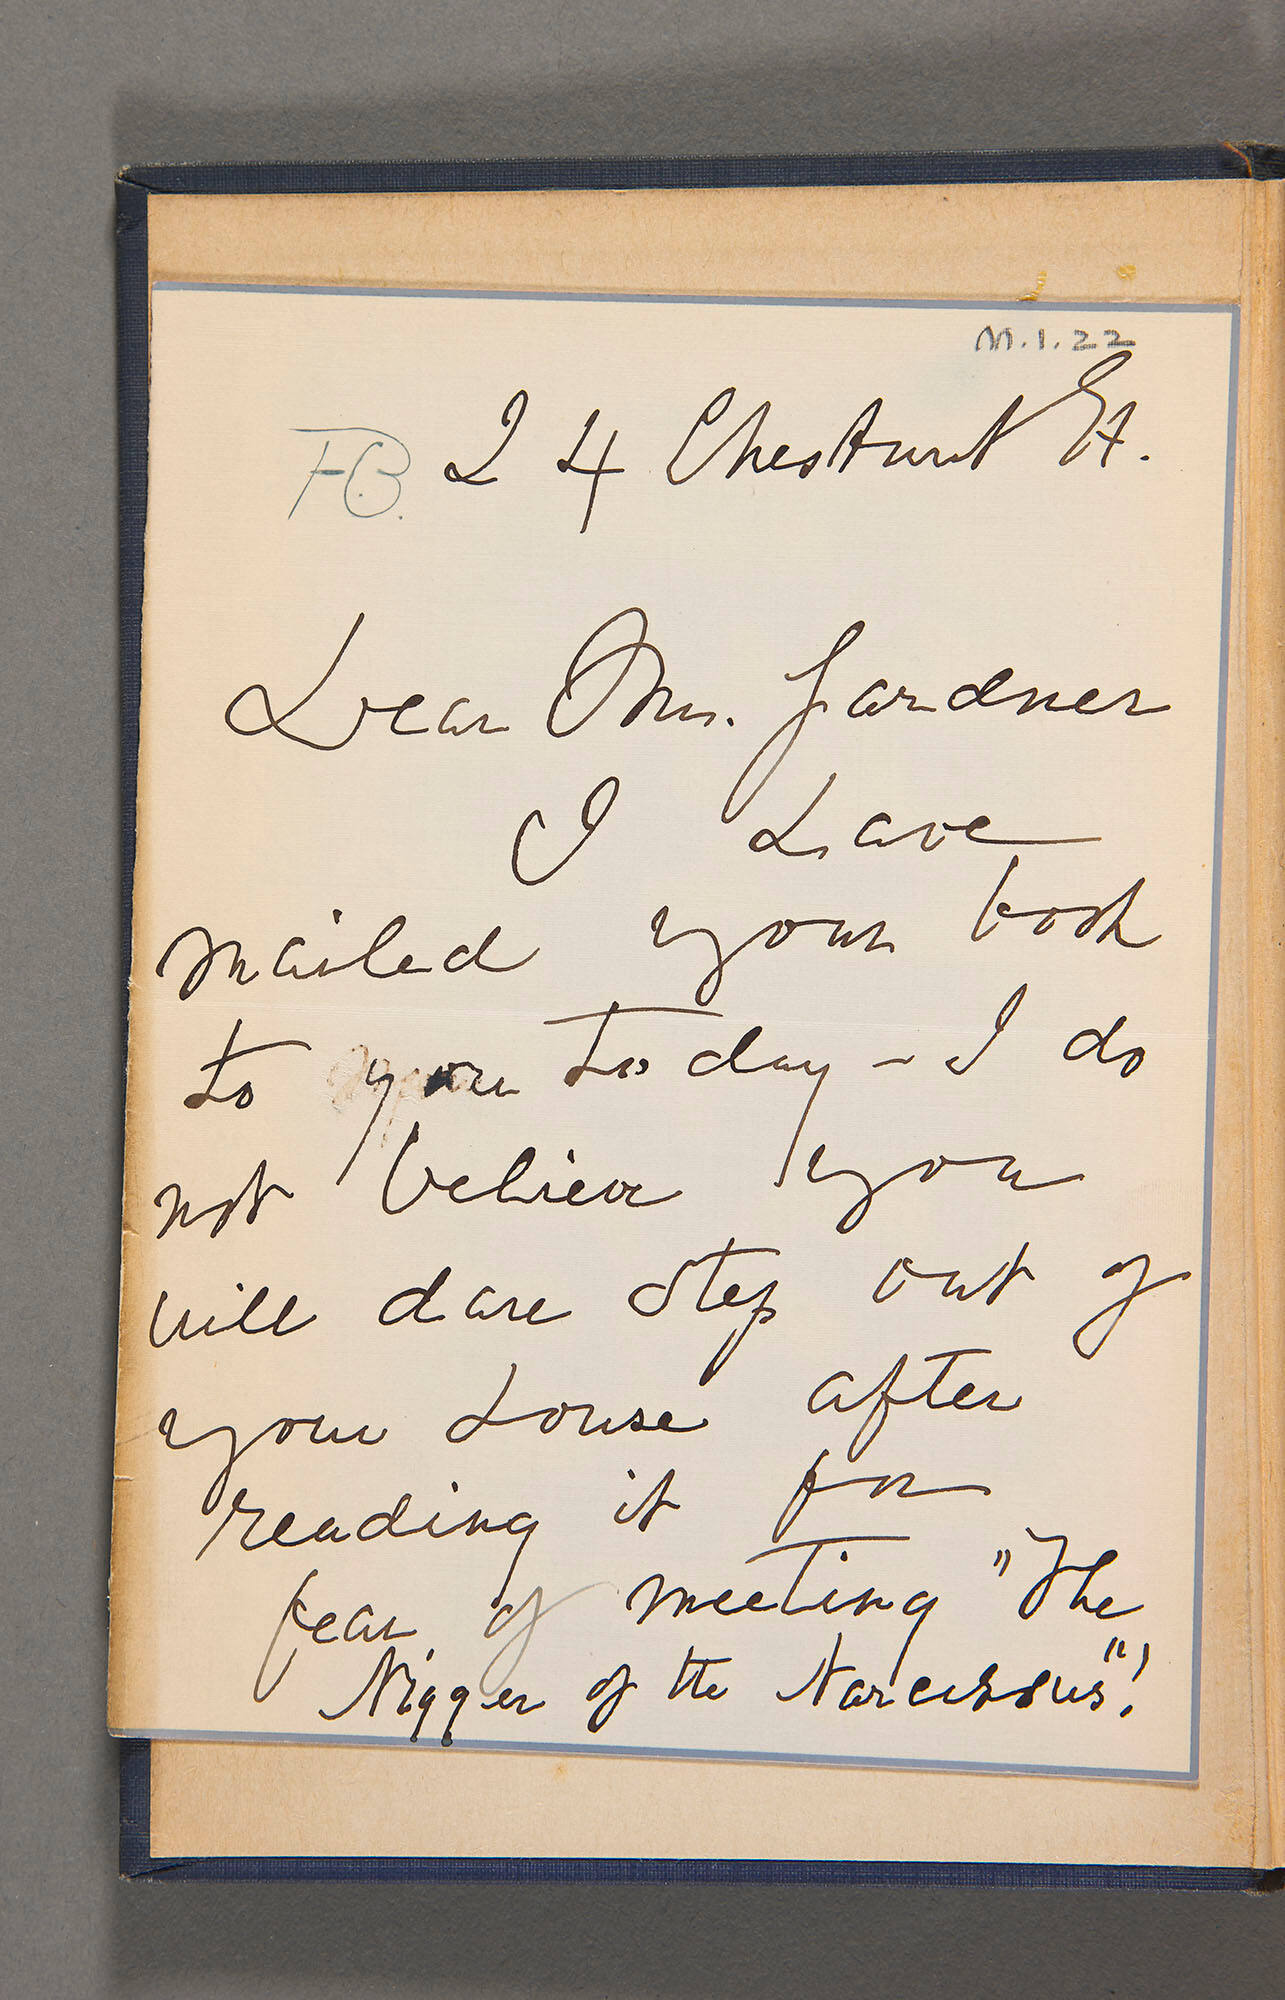 M.1.22
F.C.B. 24 Chestnut St.
Dear Mrs. Gardner
I have
mailed your book
to you today - I do
not believe you
will dare step out of
your house after
reading it for
fear of meeting "The
Nigger of the Narcissus"!